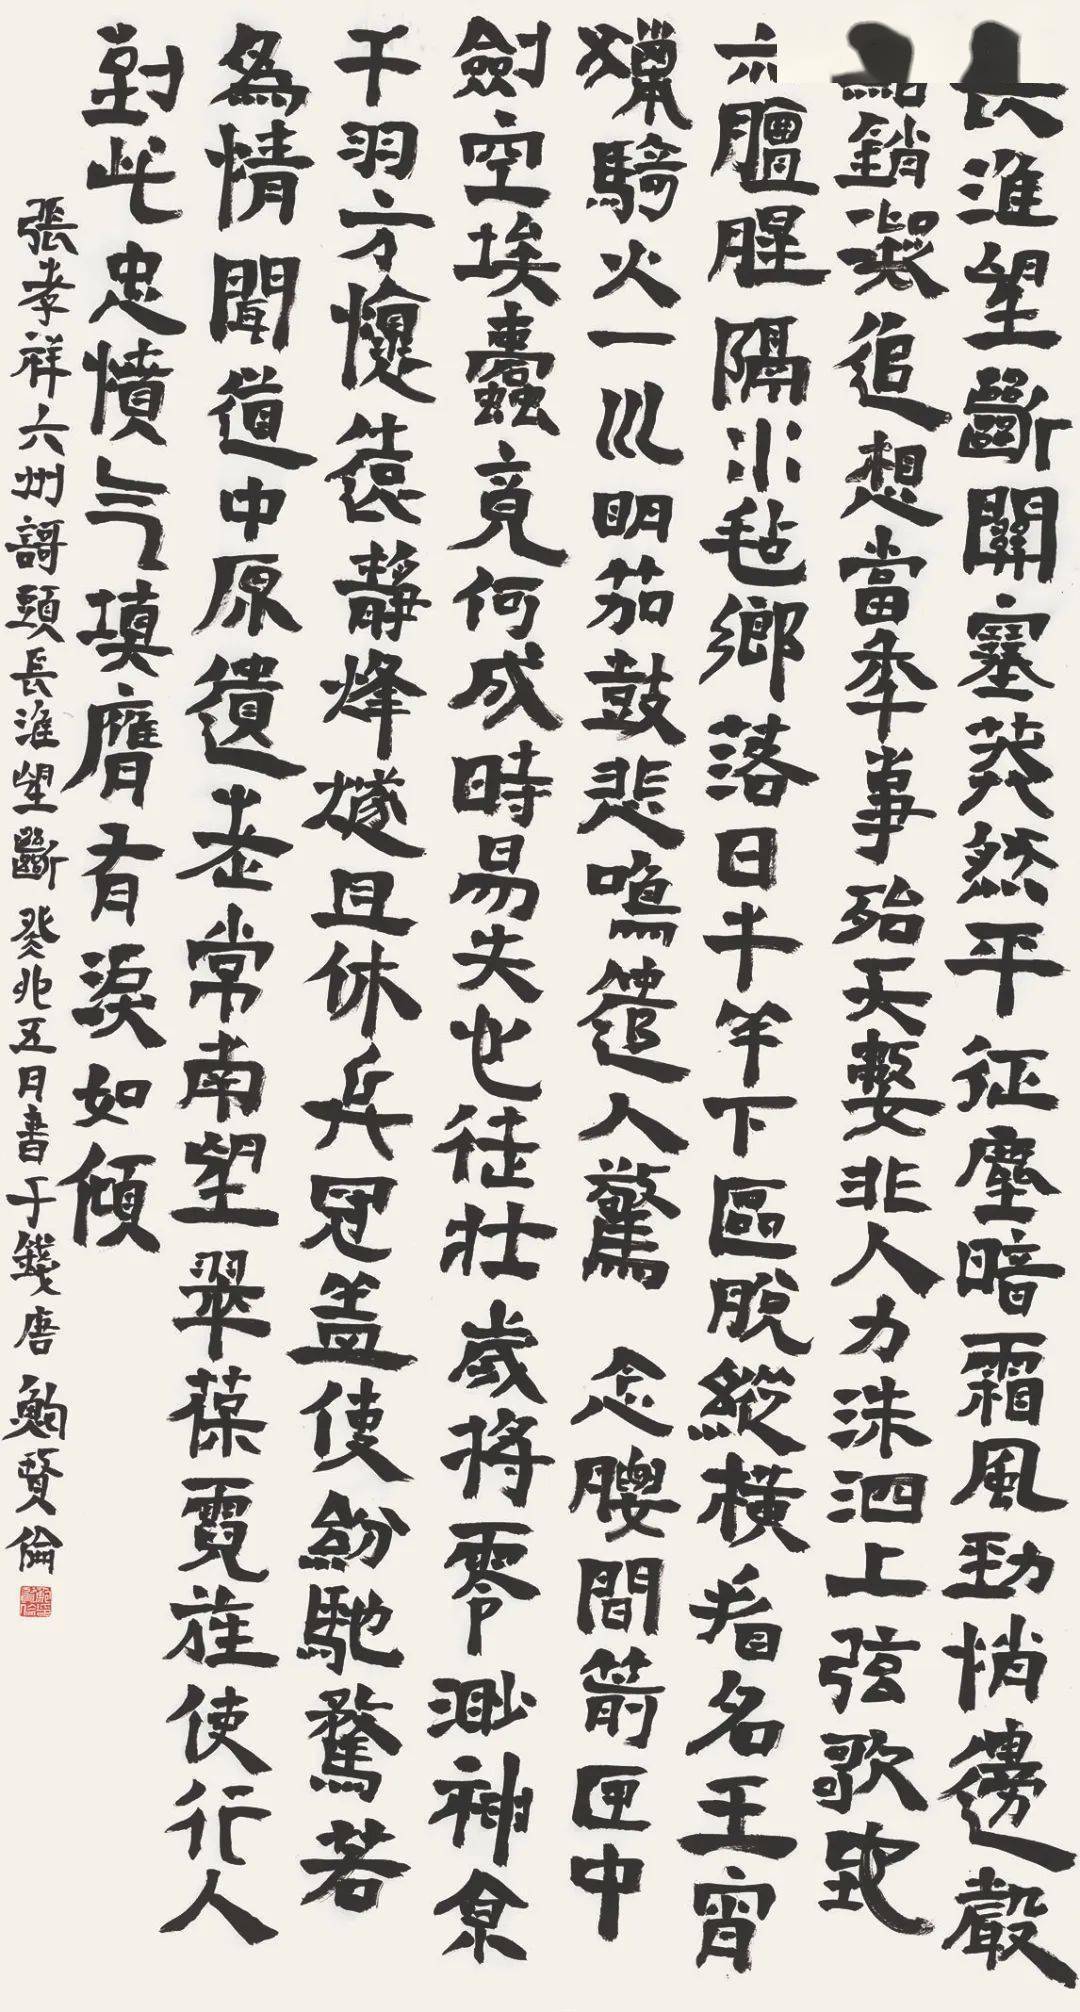 長淮望斷關塞莽然平征塵暗霜風勁悄邊聲
銷凝追想當年事殆天數非人力洙泗上弦歌地
亦膻腥隔水毡鄉落日牛羊下區脫縱橫看名王宵
獵騎火一川明笳鼓悲鳴遣人驚 念腰間箭匣中
劍空埃蠹竟何成時易失心徒壯歲將零渺神京
干羽方懷遠靜烽燧且休兵冠盖使紛馳騖若
為情聞道中原遺老常南望翠葆霓旌使行人
到此忠憤气填膺有淚如傾
張孝祥六州謌頭長淮望斷 癸卯五月書于錢唐 鮑賢倫